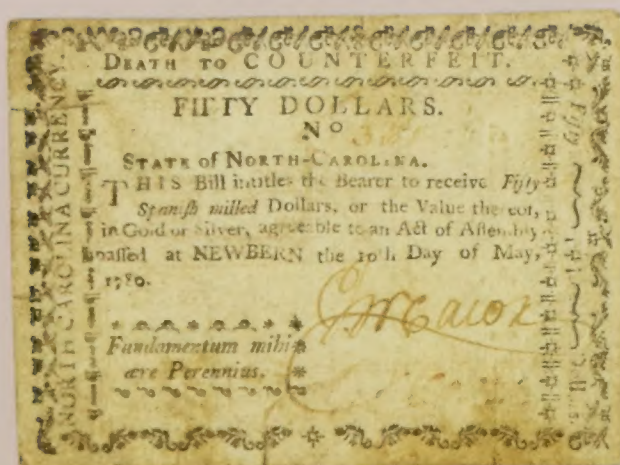 DEATH TO COUNTERFEIT.
FIFTY DOLLARS.
No
STATE of NORTH-CAROLINA.
THIS Bill intitles the Bearer to receive Fifty
Spanish milled Dollars, or the Value thereof,
in Gold or Silver, agreeable to an Act of Assembly
passed at NEWBERN the 10th Day of May,
1780.
Fundamentum mihi
ære Perennius.
NORTH CAROLINA CURRENCY.
Fifty